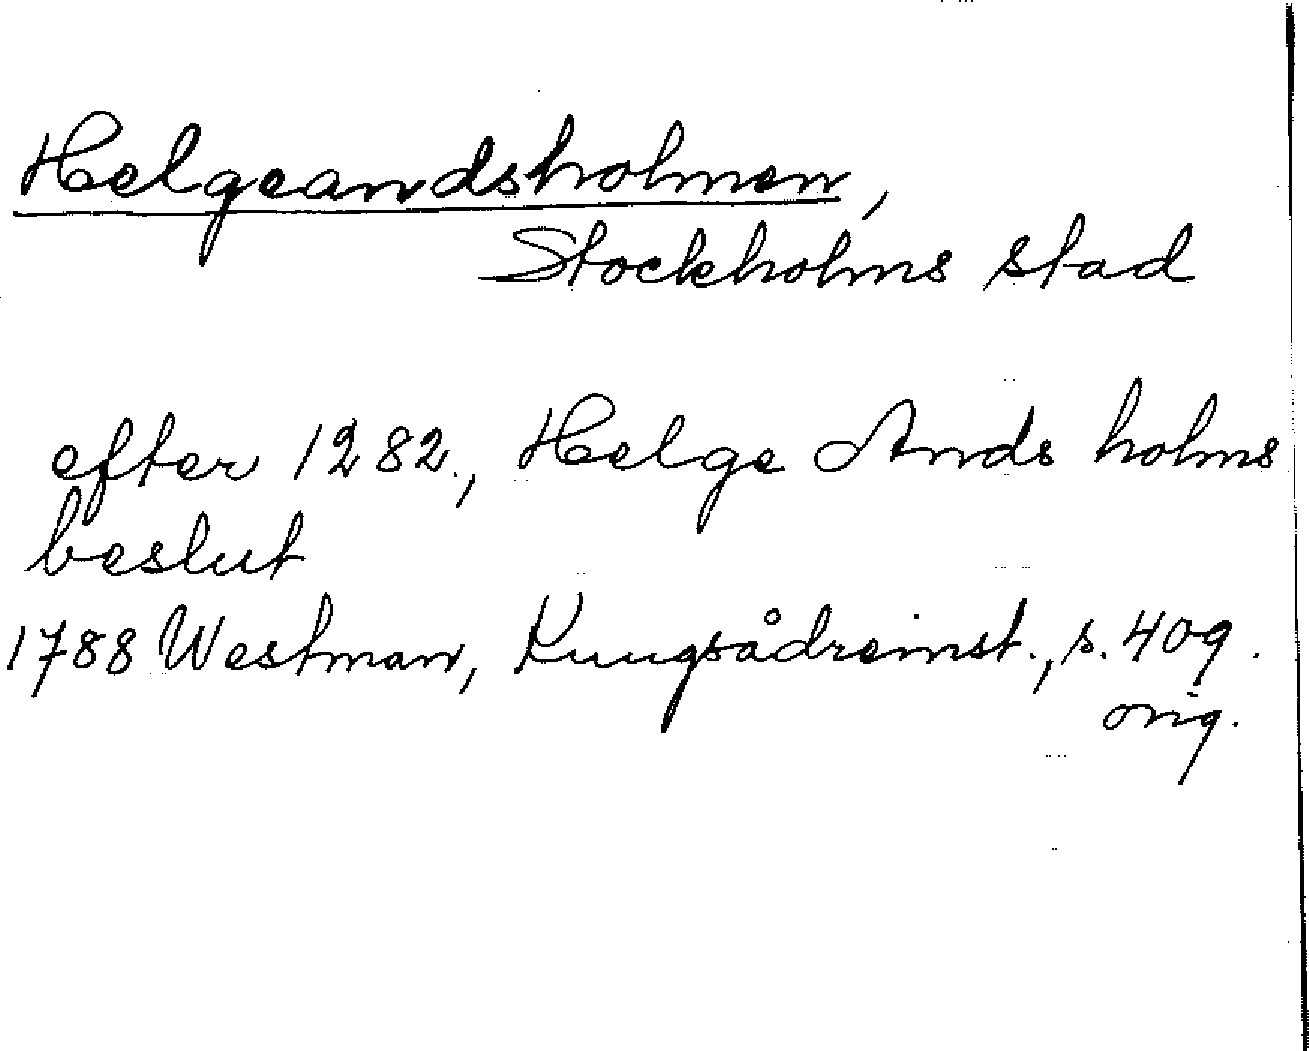 Helgeandsholmen,
Stockholms stad
efter 1282., Helge Ands holms
beslut
1788 Westman, Kungsådreinst., s. 409.
orig.